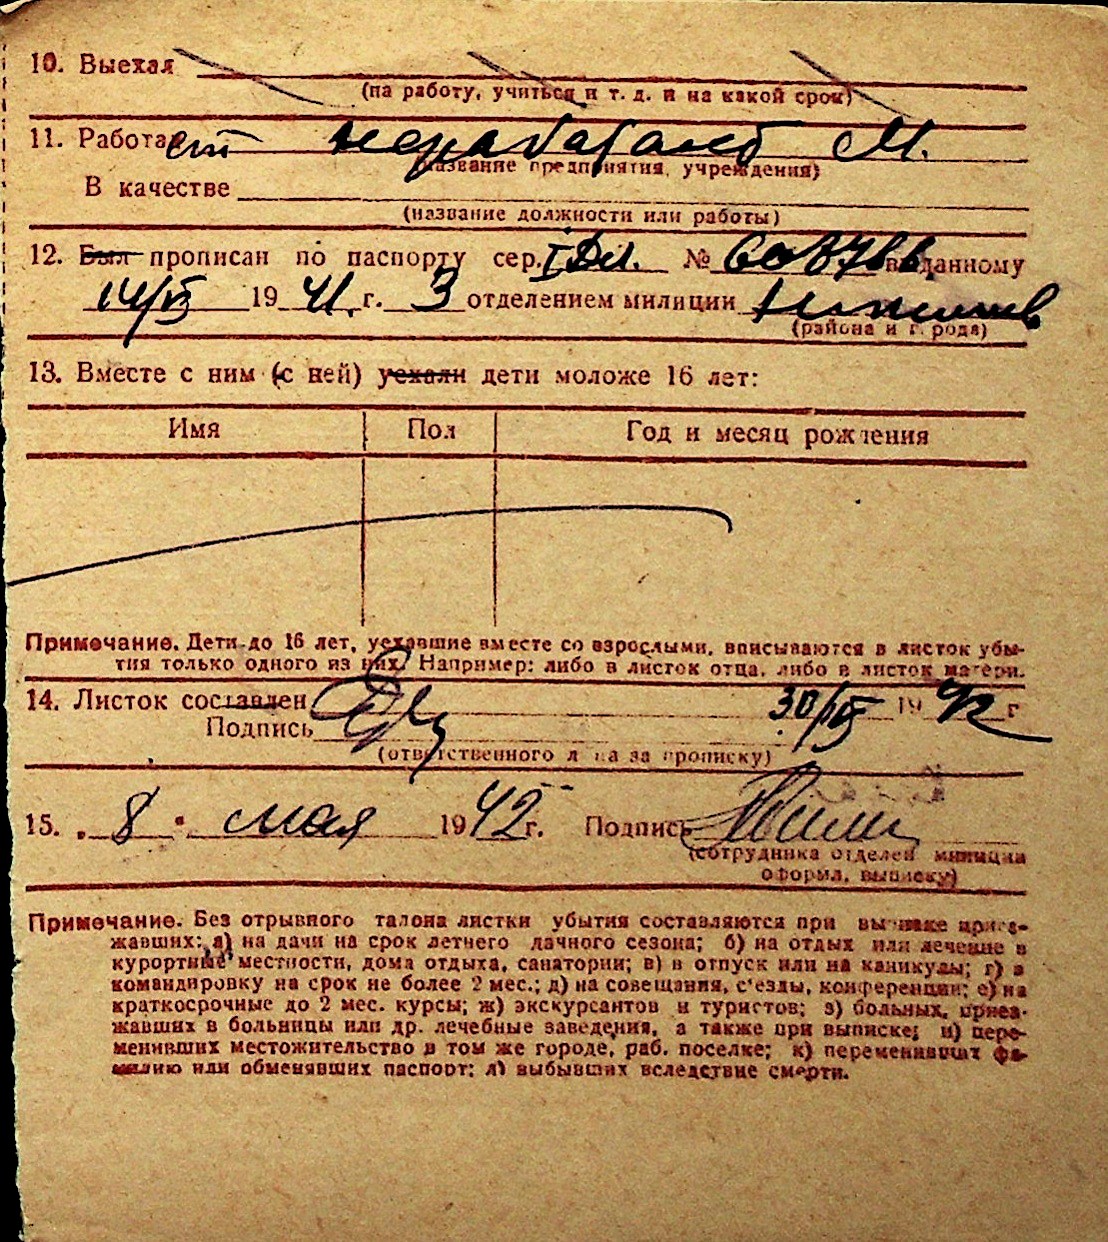 10. Выехал
(на работу, учиться и т. д. и на какой срок)
11. Работает
(название предприятия, учреждения)
В качестве
(название должности или работы)
12. Был прописан по паспорту сер. № выданному
14/IV 1941 г. 3 отделением милиции
(района и города)
13. Вместе с ним (с ней) уехали дети моложе 16 лет:
Имя Пол Год и месяц рождения
Примечание. Дети до 16 лет, уехавшие вместе со взрослыми, вписываются в листок убы-
тия только одного из них. Например: либо в листок отца, либо в листок матери.
14. Листок составлен 30/IV 1942 г
Подпись
(ответственного лица за прописку)
15. „8" мая 1942 г. Подпись
(сотрудника отделен. милиции
оформл. выписку)
Примечание. Без отрывного талона листки убытия составляются при выписке приез-
жавших: а) на дачи на срок летнего дачного сезона; б) на отдых или лечение в
курортные местности, дома отдыха, санатории; в) в отпуск или на каникулы; г) в
командировку на срок не более 2 мес.; д) на совещания, с'езды, конференции; е) на
краткосрочные до 2 мес. курсы; ж) экскурсантов и туристов; з) больных, приез-
жавших в больницы или др. лечебные заведения, а также при выписке; и) пере-
менивших местожительство в том же городе, раб. поселке; к) переменивших фа-
милию или обменявших паспорт; л) выбывших вследствие смерти.